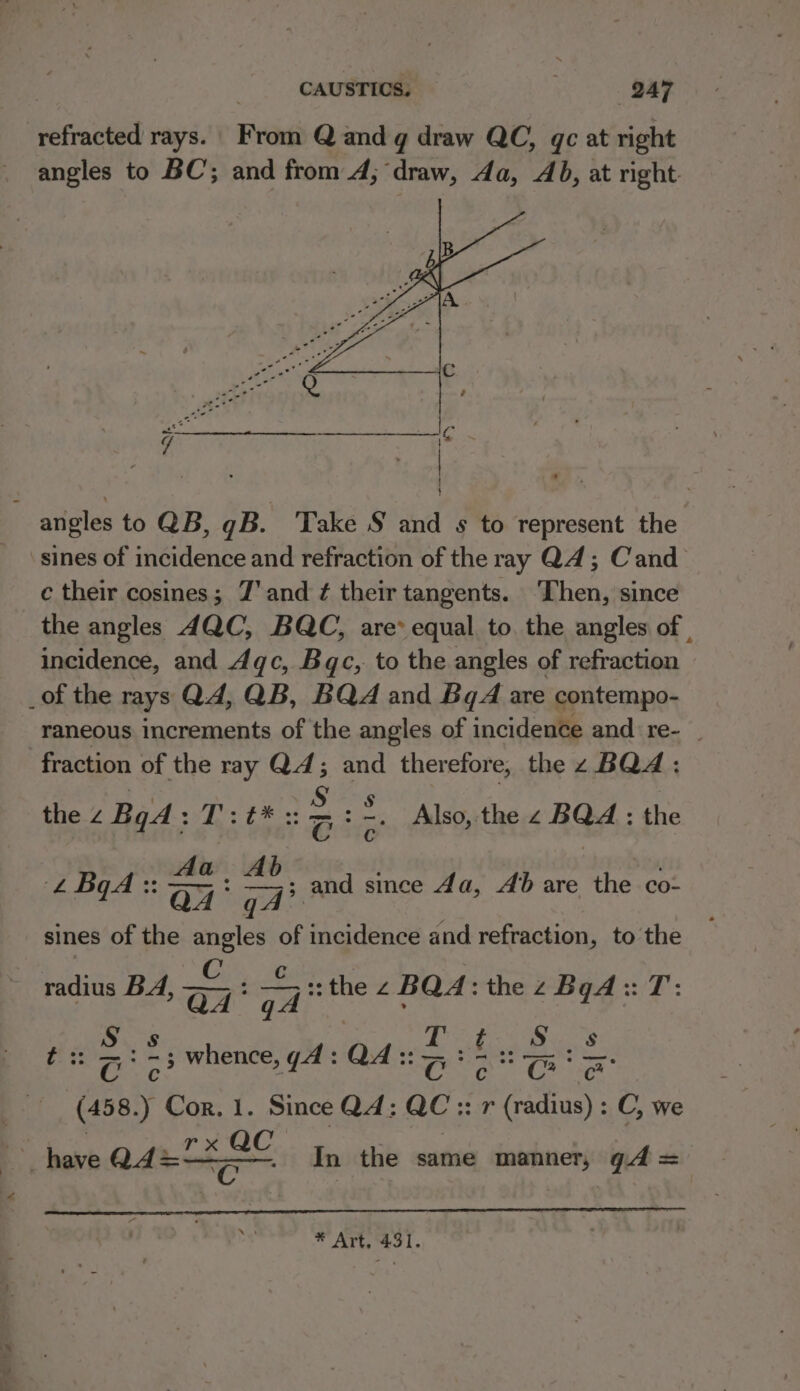 CAUSTICS. 247
refracted rays. From Q and q draw QC, qc at right
angles to BC; and from A, draw, Aa, Ab, at right
b B
a
A
Q C
q c
angles to QB, qB. Take S and s to represent the
sines of incidence and refraction of the ray QA; C and
c their cosines; T and t their tangents. Then, since
the angles AQC, BQC, are equal to the angles of
incidence, and Aqc, Bqc, to the angles of refraction
of the rays QA, QB, BQA and BqA are contempo-
raneous increments of the angles of incidence and re-
fraction of the ray QA; and therefore, the ∠ BQA :
the ∠ BqA : T : t* :: S/C : s/c. Also, the ∠ BQA : the
∠ BqA :: Aa/QA : Ab/qA; and since Aa, Ab are the co-
sines of the angles of incidence and refraction, to the
radius BA, C/QA : c/qA :: the ∠ BQA : the ∠ BqA :: T :
t :: S/C : s/c; whence, qA : QA :: T/C : t/c :: S/C² : s/c².
(458.) Cor. 1. Since QA : QC :: r (radius) : C, we
have QA = r × QC/C. In the same manner, qA =
* Art. 431.